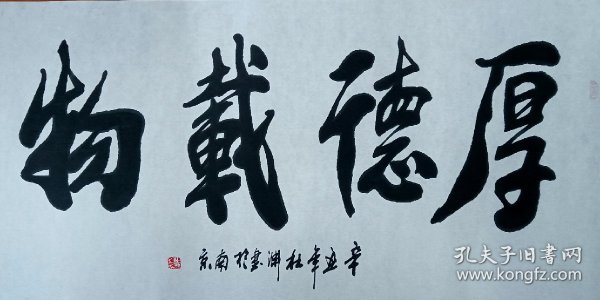 厚德载物
辛丑年杜渊书于南京
孔夫子旧书网
www.kongfz.com